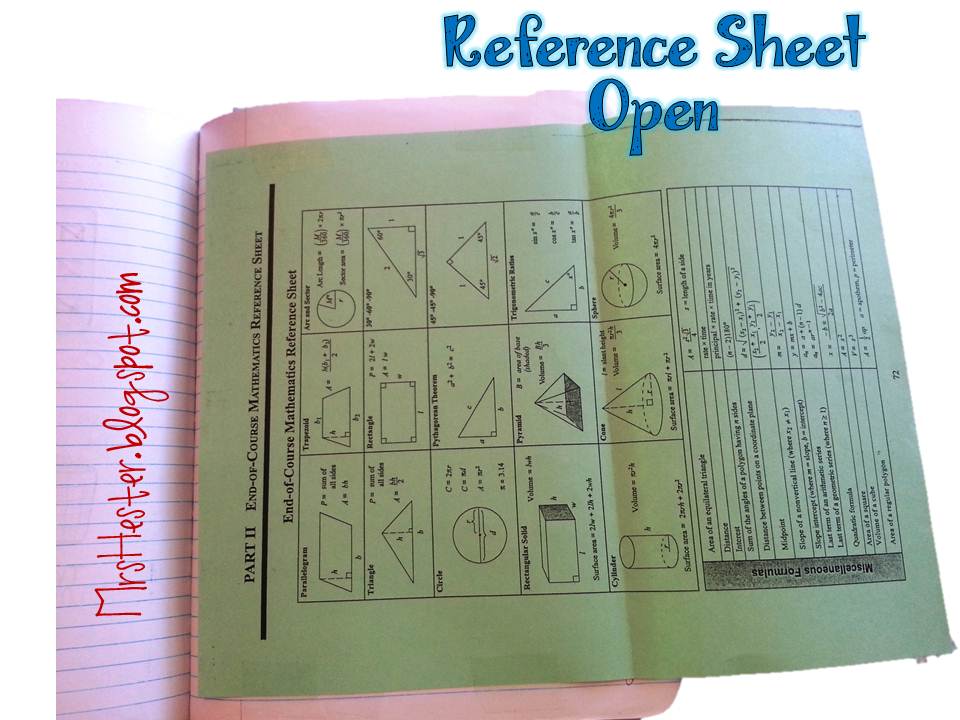 Reference Sheet
Open
MrsHester.blogspot.com
PART II END-OF-COURSE MATHEMATICS REFERENCE SHEET
End-of-Course Mathematics Reference Sheet
Parallelogram
P = sum of
all sides
A = bh
h
b
b
Trapezoid
b₁
h
b₂
A = h(b₁ + b₂)/2
Arc and Sector
Arc Length = (M/360) × 2πr
Sector area = (M/360) × πr²
M°
r
Triangle
P = sum of
all sides
A = bh/2
h
b
Rectangle
P = 2l + 2w
A = lw
w
l
30° -60° -90°
2
60°
1
30°
√3
Circle
C = 2πr
C = πd
A = πr²
π ≈ 3.14
r
d
Pythagorean Theorem
a² + b² = c²
a
c
b
45° -45° -90°
1
1
45°
45°
√2
Rectangular Solid
Volume = lwh
h
w
l
Surface area = 2lw + 2lh + 2wh
Pyramid
B = area of base
(shaded)
Volume = Bh/3
h
Trigonometric Ratios
sin x° = a/c
cos x° = b/c
tan x° = a/b
a
c
x°
b
Cylinder
Volume = πr²h
h
r
Surface area = 2πrh + 2πr²
Cone
l = slant height
Volume = πr²h/3
l
h
r
Surface area = πrl + πr²
Sphere
Volume = 4πr³/3
r
Surface area = 4πr²
Miscellaneous Formulas
Area of an equilateral triangle A = s²√3/4 s = length of a side
Distance rate × time
Interest principal × rate × time in years
Sum of the angles of a polygon having n sides (n − 2)180°
Distance between points on a coordinate plane d = √(x₂ − x₁)² + (y₂ − y₁)²
Midpoint (x₁ + x₂/2, y₁ + y₂/2)
Slope of a nonvertical line (where x₂ ≠ x₁) m = y₂ − y₁/x₂ − x₁
Slope intercept (where m = slope, b = intercept) y = mx + b
Last term of an arithmetic series aₙ = a + (n − 1) d
Last term of a geometric series (where n ≥ 1) aₙ = arⁿ⁻¹
Quadratic formula x = −b ± √b² − 4ac/2a
Area of a square A = s²
Volume of a cube V = s³
Area of a regular polygon A = ½ ap a = apothem, p = perimeter
72